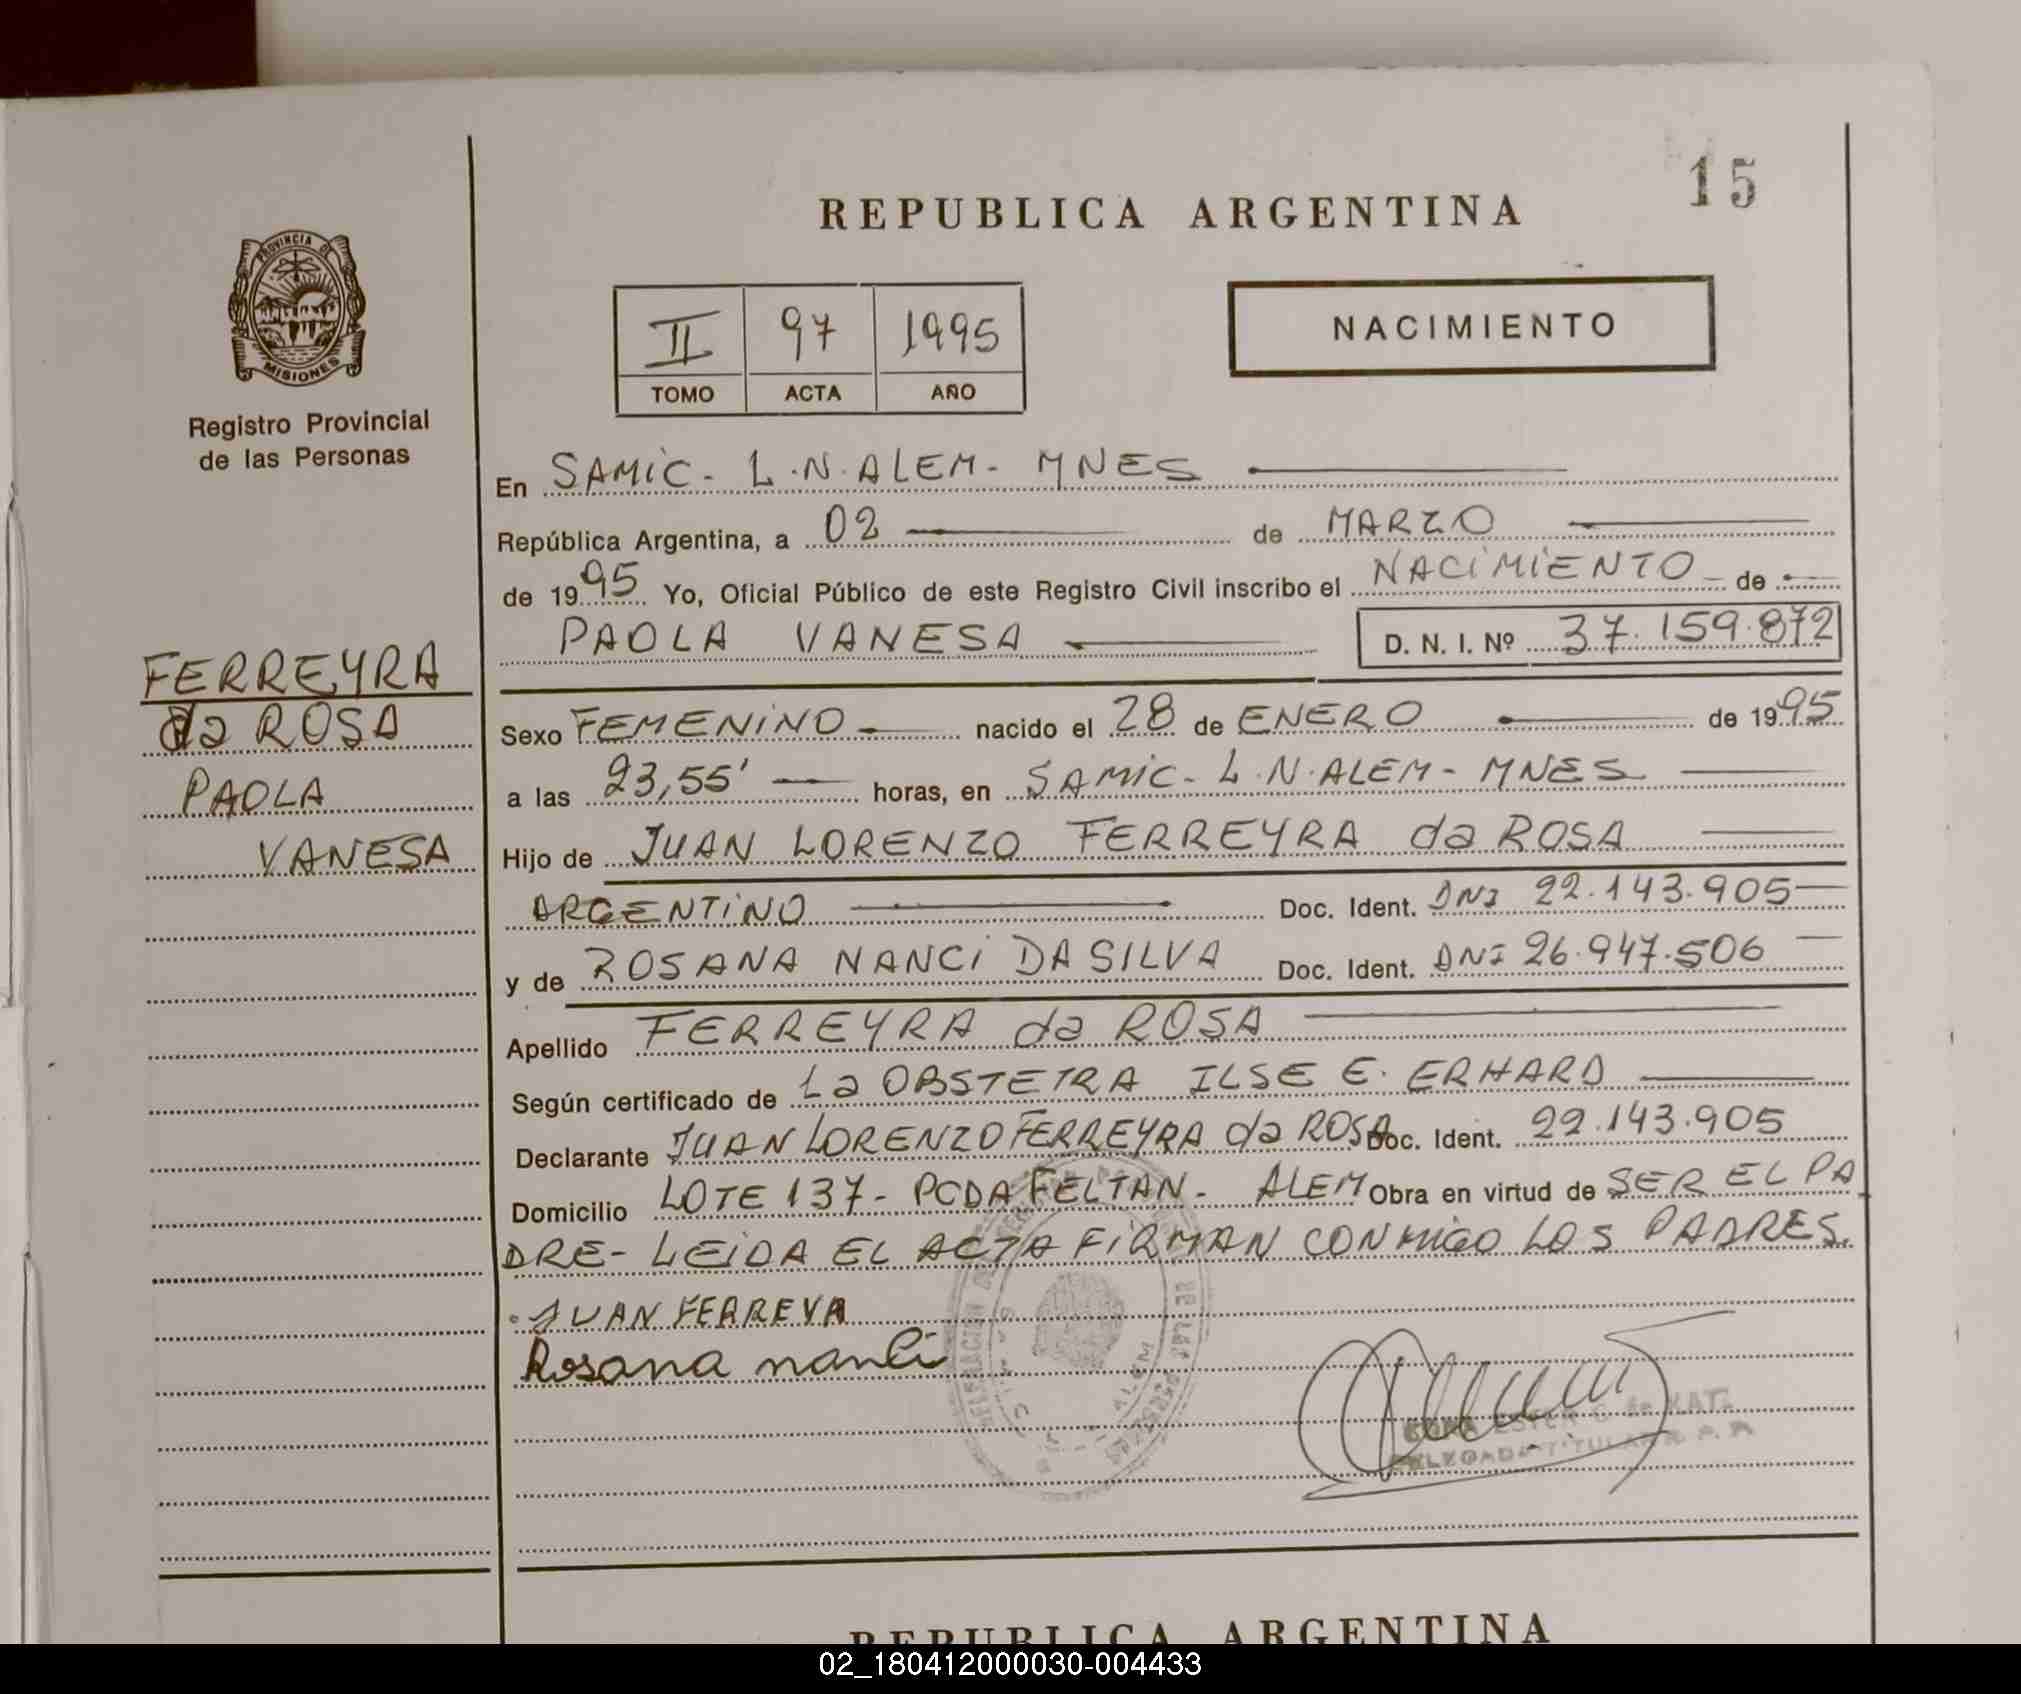 15
REPUBLICA ARGENTINA
PROVINCIA DE
MISIONES
Registro Provincial
de las Personas
II 97 1995
TOMO ACTA AÑO
NACIMIENTO
En SAMIC - L.N. ALEM - MNES
República Argentina, a 02 de MARZO
de 1995 Yo, Oficial Público de este Registro Civil inscribo el NACIMIENTO de
PAOLA VANESA D. N. I. Nº 37.159.872
FERREYRA
da ROSA
PAOLA
VANESA
Sexo FEMENINO nacido el 28 de ENERO de 1995
a las 23,55' horas, en SAMIC - L.N. ALEM - MNES
Hijo de JUAN LORENZO FERREYRA da ROSA
ARGENTINO Doc. Ident. DNI 22.143.905
y de ROSANA NANCI DA SILVA Doc. Ident. DNI 26.947.506
Apellido FERREYRA da ROSA
Según certificado de La OBSTETRA ILSE E. ERHARD
Declarante JUAN LORENZO FERREYRA da ROSA Doc. Ident. 22.143.905
Domicilio LOTE 137 - PCDA FELTAN - ALEM Obra en virtud de SER EL PA
DRE - LEIDA EL ACTA FIRMAN CONMIGO LOS PADRES.
JUAN FERREYA
Rosana nanci
ESTER G. de
DELEGADA TITULAR
REPUBLICA ARGENTINA
02_180412000030-004433